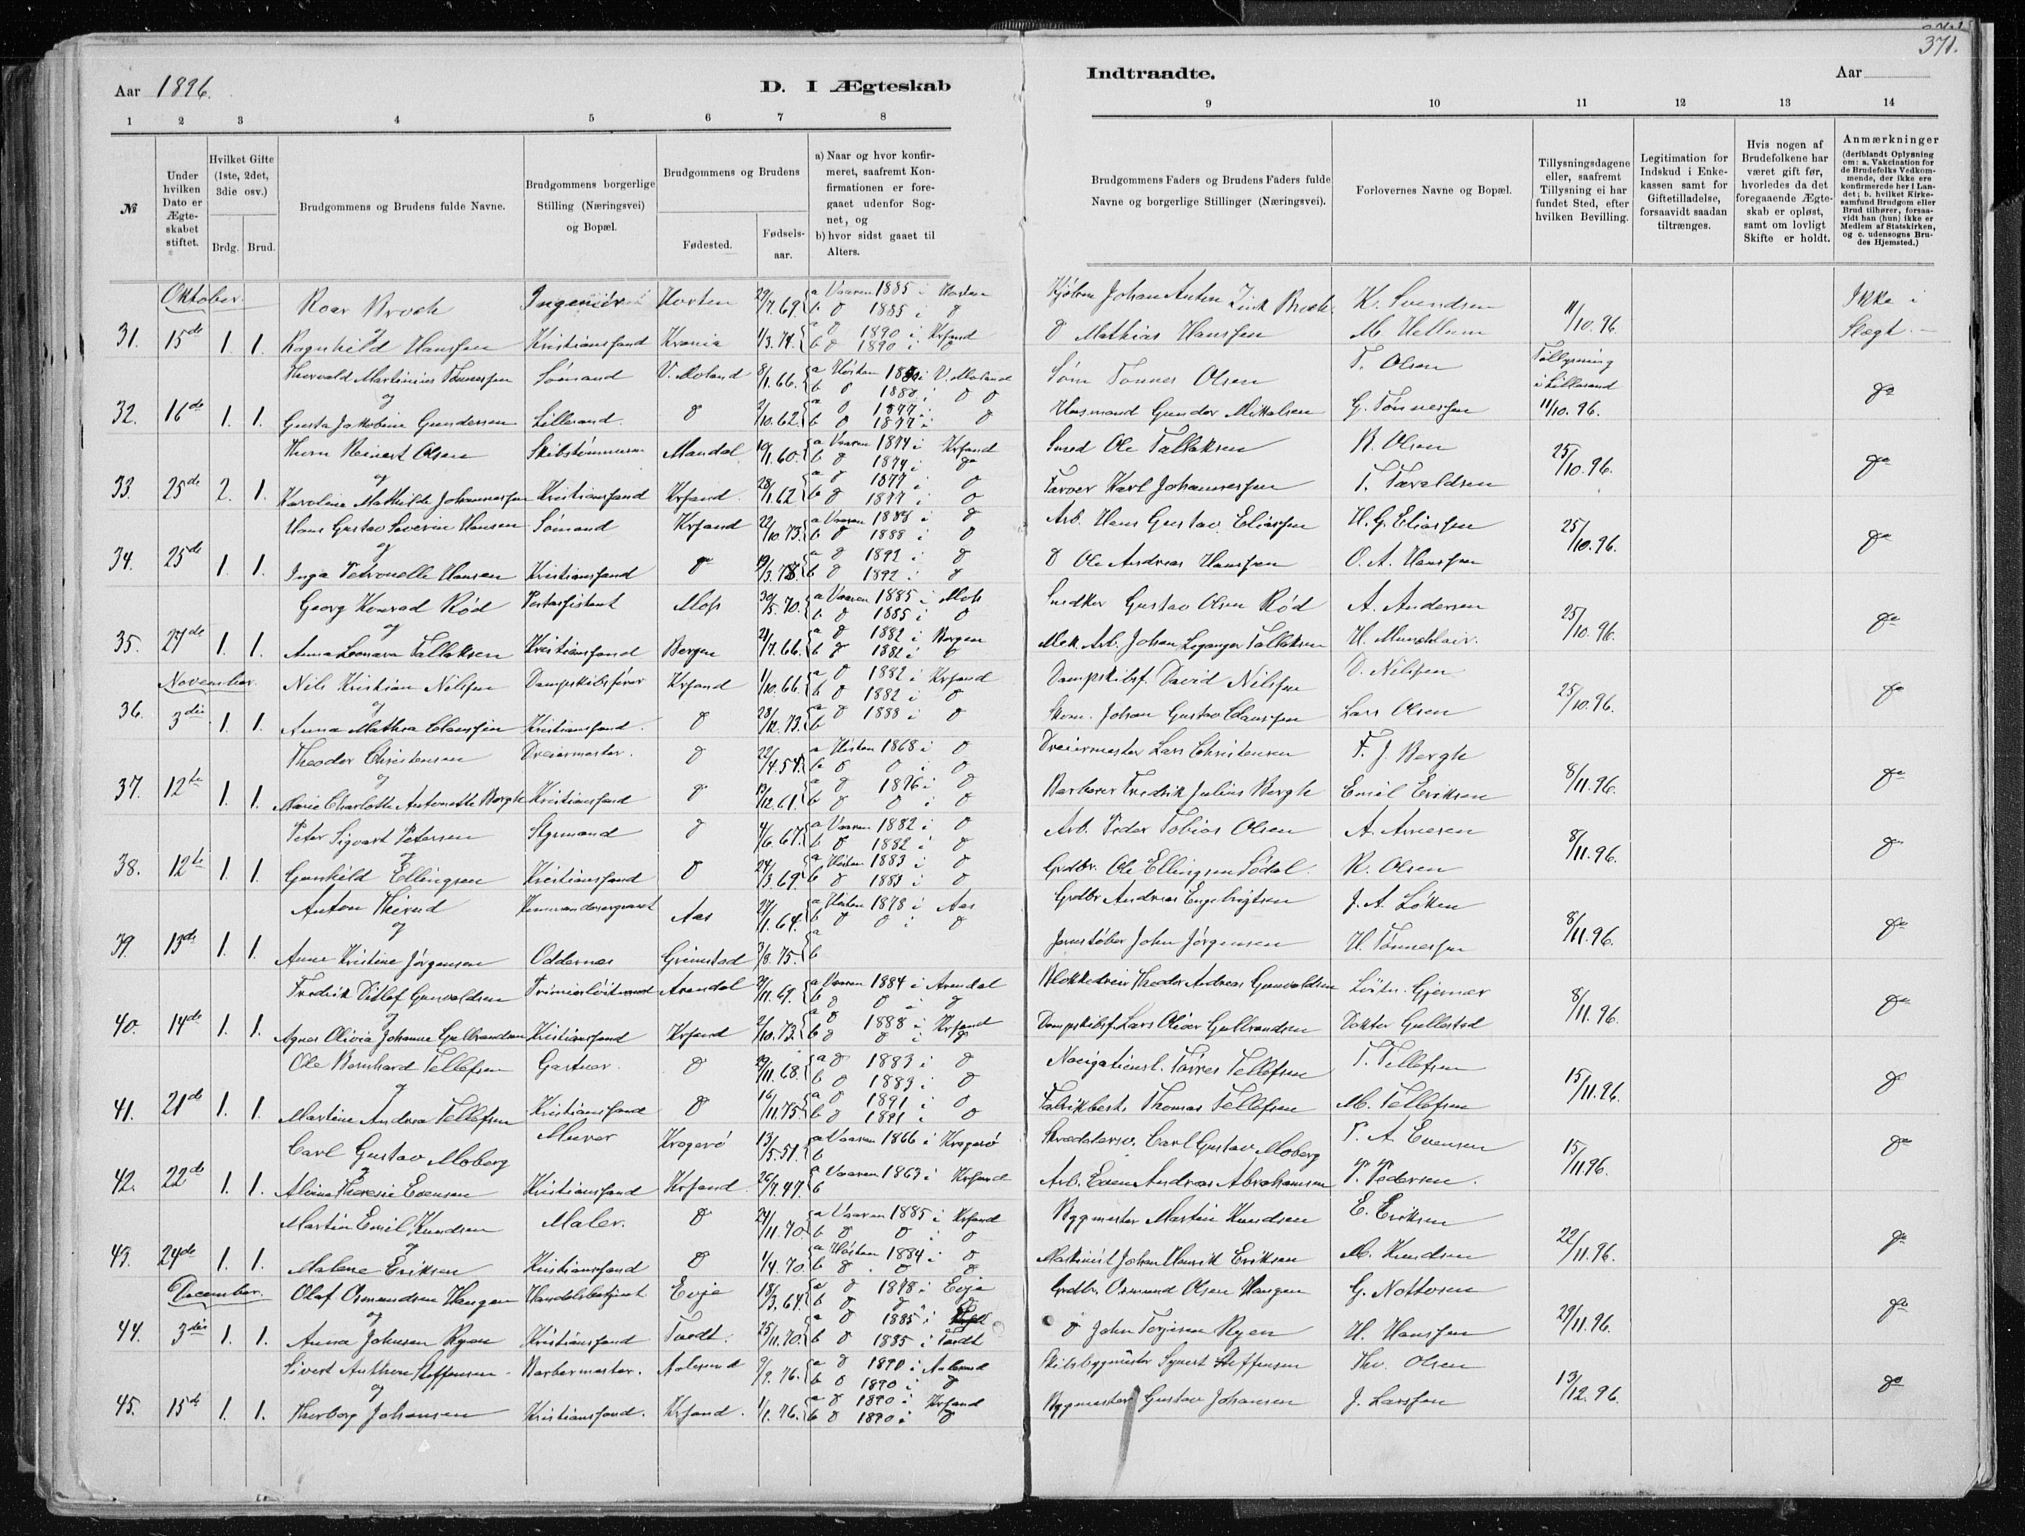 371.
Aar 1896. D. I Ægteskab Indtraadte. Aar
1 2 3 4 5 6 7 8 9 10 11 12 13 14
№
Under hvilken Dato er Ægteskabet stiftet.
Hvilket Gifte (1ste, 2det, 3die osv.)
Brdg. Brud.
Brudgommens og Brudens fulde Navne.
Brudgommens borgerlige Stilling (Næringsvei) og Bopæl.
Brudgommens og Brudens
Fødested. Fødsels-aar.
a) Naar og hvor konfirmeret, saafremt Konfirmationen er foregaaet udenfor Sognet, og
b) hvor sidst gaaet til Alters.
Brudgommens Faders og Brudens Faders fulde Navne og borgerlige Stillinger (Næringsvei).
Forlovernes Navne og Bopæl.
Tillysningsdagene eller, saafremt Tillysning ei har fundet Sted, efter hvilken Bevilling.
Legitimation for Indskud i Enkekassen samt for Giftetilladelse, forsaavidt saadan tiltrænges.
Hvis nogen af Brudefolkene har været gift før, hvorledes da det foregaaende Ægteskab er opløst, samt om lovligt Skifte er holdt.
Anmærkninger (deriblandt Oplysning om: a. Vakcination for de Brudefolks Vedkommende, der ikke ere konfirmerede her i Landet; b. hvilket Kirkesamfund Brudgom eller Brud tilhører, forsaavidt han (hun) ikke er Medlem af Statskirken, og c. udensogns Brudes Hjemsted.)
Oktober. Roar Broch Ingeniør Horten 29/7.69. a Vaaren 1885 i Horten b 1885 i Johan Anton Zink Broch. K. Svendsen 11/10.96. Ikke i
31. 15de 1. 1. og Ragnhild Hanssen Kristianssand Krania 1/3.74. a 1890 i Krsand b 1890 i Mathias Hanssen M. Hellum Slægt.
Thorvald Martinius Tønnessen Sømand V. Moland 8/1.66. a Høsten i V. Moland b 1880 i Søm Tønnes Olsen T. Olsen Tillysning i Lillesand
32. 16de 1. 1. og Gusta Jakobine Gundersen Lillesand. 2/10.62. a 1877 i b 1877 i Husmand Gunder Mikalsen G. Tønnessen 11/10.96.
Thom Reinert Olsen Skibstømmerm Mandal 19/1.60. a Vaaren 1874 i Krsand b 1874 i Smed Ole Tallaksen R. Olsen 25/10.96.
33. 25de 2. 1. og Karoline Mathilde Johannessen Kristianssand Krsand. 28/1.62 a 1877 i b 1877 i Farver Karl Johannessen T. Taraldsen
Hans Gustav Severin Hansen Sømand Krsand 22/10.73. a Vaaren 1888 i b 1888 i Arb. Hans Gustav Eliassen H. G. Eliassen 25/10.96.
34. 25de 1. 1. og Inga Petronelle Hansen Kristianssand 19/3.78. a 1892 i b 1892 i Ole Andreas Hanssen O. A. Hanssen
Georg Konrad Rød Postassistent Moss 30/5.70. a Vaaren 1885 i Moss b 1885 i Snedker Gustav Olsen Rød A. Andersen 25/10.96.
35. 27de 1. 1. og Anna Leonara Tallaksen Kristianssand Bergen 21/7.66. a 1882 i Bergen b 1882 i Mek. Arb. Johan Leganger Tallaksen H. Mundklair.
November. Nils Kristian Nilssen Dampskibsfører Krsand 1/10.66. a 1882 i Krsand b 1882 i Dampskibsf. David Nilssen D. Nilssen 25/10.96.
36. 3die 1. 1. og Anna Mathea Claussen Kristianssand. 28/12.73. a 1888 i b Skom. Johan Gustav Claussen Lars Olsen
Theodor Christensen Dreiermester. 22/4.54. a Høsten 1868 i b Dreiermester Lars Christensen F. J. Bergh 8/11.96.
37. 12te 1. 1. og Marie Charlotte Antonette Bergh Kristianssand 13/12.61. a 1876 i b Barberer Fredrik Julius Bergh Emil Eriksen
Peter Sigvart Petersen Styrmand 4/6.67. a Vaaren 1882 i b 1882 i Arb. Peder Tobias Olsen A. Arnesen 8/11.96.
38. 12te 1. 1. og Gunhild Ellingsen Kristianssand 24/3.69. a Høsten 1883 i b 1883 i Grdbr. Ole Ellingsen Sødal. R. Olsen
Anton Thorud Aas 27/1.64. a Høsten 1878 i Aas b Grdbr Andreas Engebrigtsen J. A. Løken 8/11.96.
39. 13de 1. 1. og Anne Kristine Jørgensen Oddernes Grimstad 3/8.75. a b Jernstøber John Jørgensen H. Tønnessen
Fredrik Ditlef Gunvaldsen Premierløitnant Arendal 29/11.69. a Vaaren 1884 i Arendal b Blokkedreier Theodor Andreas Gunvaldsen Løitn. Gjernær 8/11.96.
40. 14de 1. 1. og Agnes Olivia Johanne Gulbrandsen Kristianssand Krsand 2/10.73. a 1888 i Krsand b Dampskibsf. Lars Oliver Gulbrandsen Doktor Gullestad
Ole Bernhard Tellefsen Gartner. 29/11.68. a 1883 i b 1883 i Navigationsl. Tørres Tellefsen T. Tellefsen 15/11.96.
41. 21de 1. 1. og Martine Andrea Tellefsen Kristianssand 16/11.75. a 1891 i b 1891 i Fabrikbest. Thomas Tellefsen M. Tellefsen
Carl Gustav Moberg Murer Kragerø 13/5.51. a Vaaren 1866 i Kragerø b Skræddersv. Carl Gustav Moberg P. A. Evensen 15/11.96.
42. 22de 1. 1. og Alvina Theresie Evensen Kristianssand Krsand. 26/7.47. a Vaaren 1863 i Krsand b Arb. Even Andreas Abrahamsen P. Pedersen.
Martin Emil Knudsen Maler. 29/11.70. a Vaaren 1885 i Krsand b Bygmester Martin Knudsen E. Eriksen 22/11.96.
43. 24de 1. 1. og Malene Eriksen Kristianssand 1/4.70. a Høsten 1884 i b Maskinist Johan Henrik Eriksen M. Knudsen
December. Olaf Osmundsen Haugen Handelsbetjent Evje 18/3.64. a 1878 i Evje b Grdbr. Osmund Olsen Haugen G. Nottosen 29/11.96.
44. 3die 1. 1. og Anna Johnsen Ryen Kristianssand Tvedt. 25/11.70. a 1885 i b 1885 i Tvedt John Torjusen Ryen H. Hanssen
Sivert Anthon Steffensen. Barbermester. Aalesund 9/9.76. a 1890 i Aalesund b 1890 i Skibsbygmester Synert Steffensen Thv. Olsen 13/12.96.
45. 15de 1. 1. og Thorborg Johansen Kristianssand. Krsand. 1/1.76. a 1890 i Krsand b 1890 i Bygmester Gustav Johansen J. Larssen